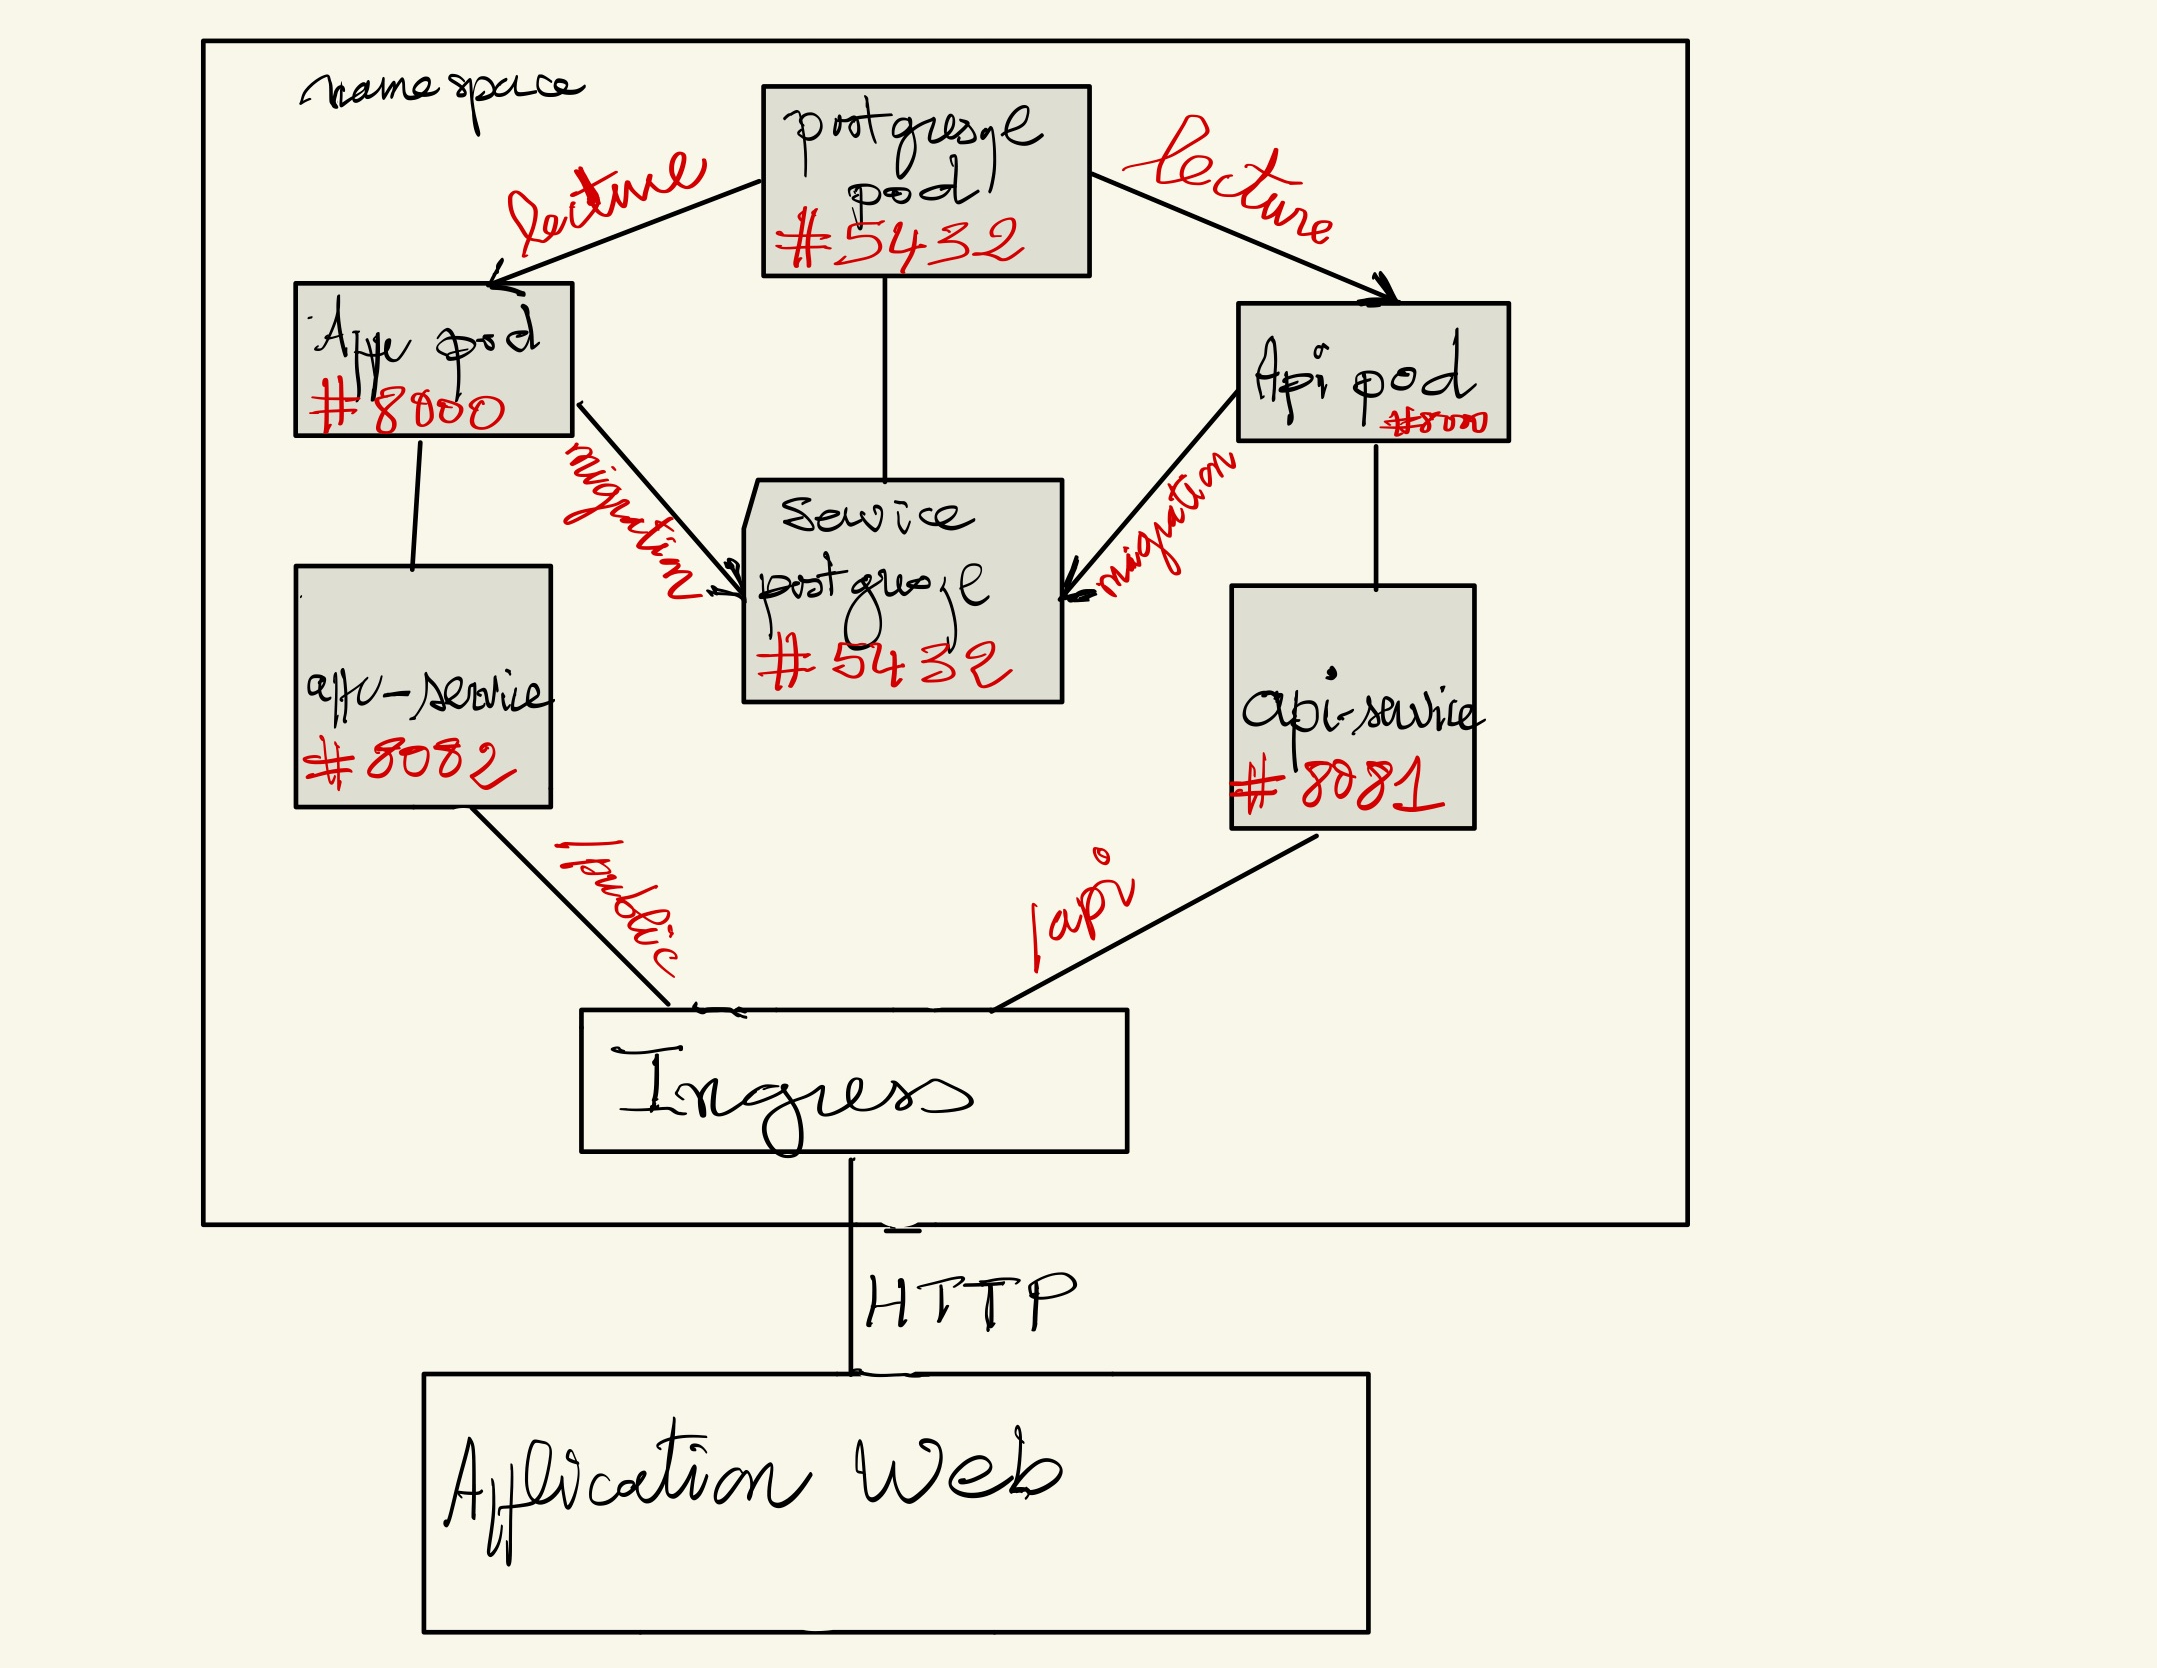 namespace
postgresql
pod
#5432
lecture
lecture
App pod
#8000
Api pod
#8000
migration
migration
service
postgresql
#5432
app-service
#8082
api-service
#8081
/public
/api
Ingress
HTTP
Application Web